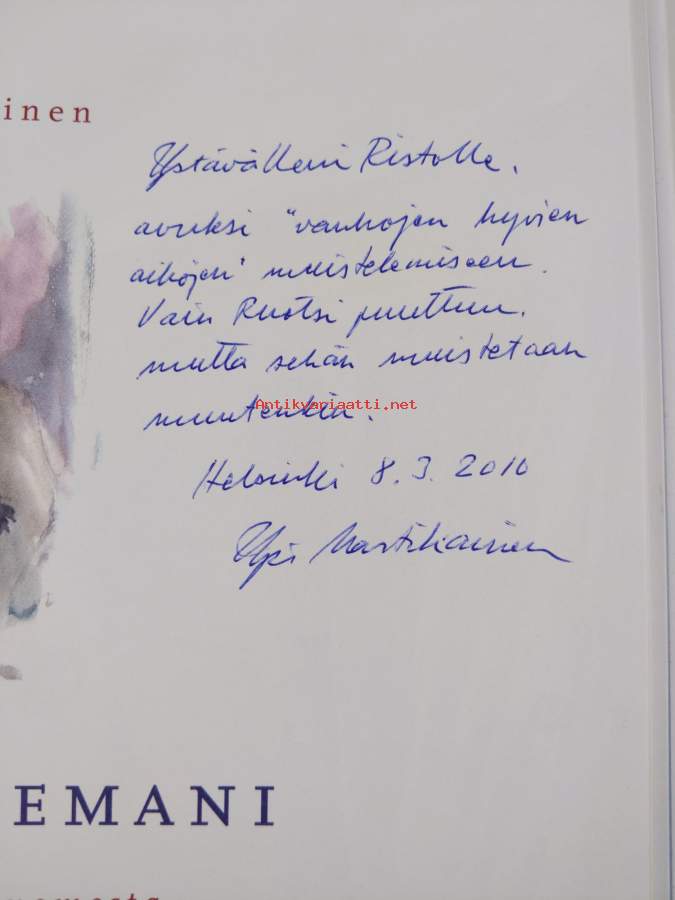 inen
Ystävälleni Ristolle,
avuksi "vanhojen hyvien
aikojen" muistelemiseen.
Vain Ruotsi puuttuu,
mutta sehän muistetaan
muutenkin.
Antikvariaatti.net
Helsinki 8.3.2010
Martikainen
EMANI